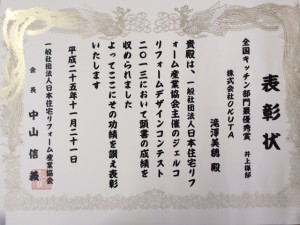 表彰状
全国キッチン部門最優秀賞 井上様邸
株式会社OKUTA
滝澤美穂 殿
貴殿は、一般社団法人日本住宅リフ
ォーム産業協会主催のジェルコ
リフォームデザインコンテスト
二〇一三において頭書の成績を
収められました
よってここにその功績を讃え表彰
いたします
平成二十五年十一月二十一日
一般社団法人日本住宅リフォーム産業協会
会長 中山信義